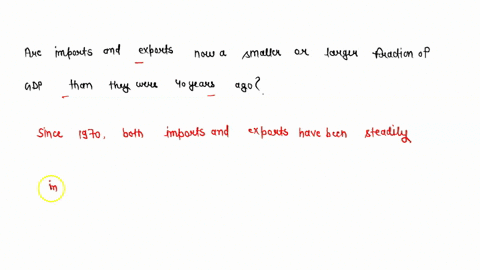 Are imports and exports now a smaller or larger fraction of
GDP than they were 40 years ago?
Since 1970, both imports and exports have been steadily
in